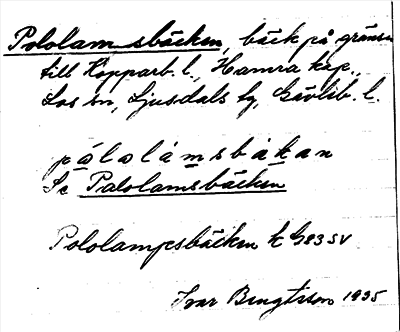 Pololamsbäcken, bäck på gränsen
till Kopparb. l., Hamra kap.,
Los sn, Ljusdals tg, Gävleb. l.
pålolåmsbäkan
Se Palolamsbäcken
Pololampesbäcken k G83SV
Ivar Bengtsson 1935